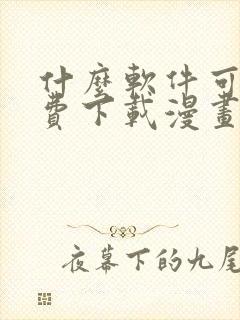 什麼軟件可
費下載漫畫
夜幕下的九尾